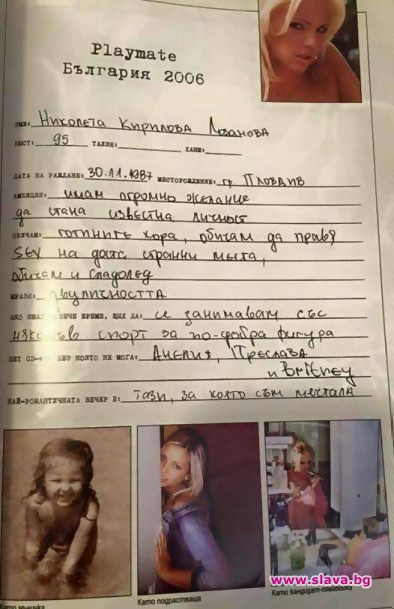 Playmate
България 2006
ИМЕ: Николета Кирилова Лозанова
БЮСТ: 95 ТАЛИЯ: ХАНШ:
ДАТА НА РАЖДАНЕ: 30.11.1987 МЕСТОРОЖДЕНИЕ: гр. Пловдив
АМБИЦИИ: имам огромно желание
да стана известна личност
ОБИЧАМ: готините хора, обичам да правя
SEX на доста странни места,
обичам и сладолед
МРАЗЯ: двуличността
АКО ИМАМ ПОВЕЧЕ ВРЕМЕ, ЩЯХ ДА: се занимавам със
някакъв спорт за по-добра фигура
ПЕТ CD-та БЕЗ КОИТО НЕ МОГА: Анелия, Преслава
и Britney
НАЙ-РОМАНТИЧНАТА ВЕЧЕР Е: Тази, за която съм мечтала
Като
Като подрастваща
Като кандидат-плеймейтка
www.slava.bg